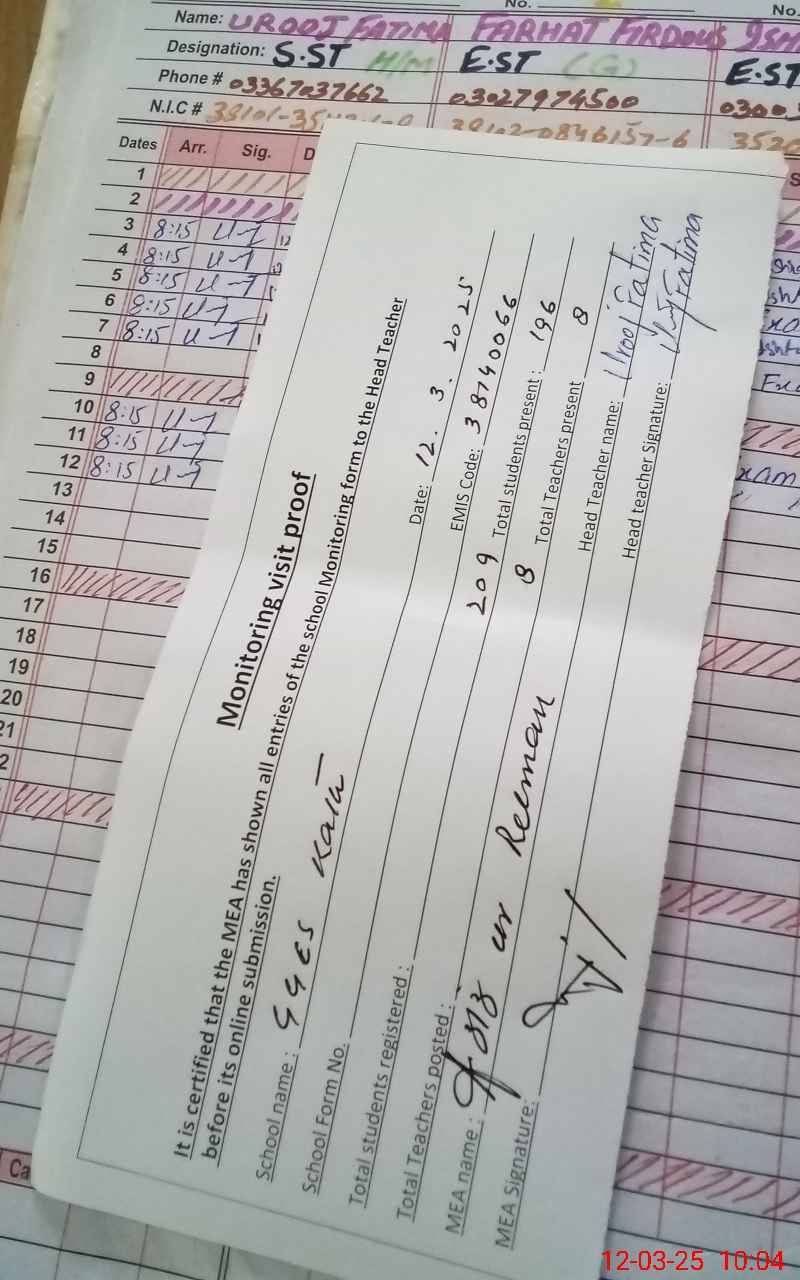 No. No.
Name: UROOJ FATIMA FARHAT FIRDOUS
Designation: S.ST H/M E.ST (G) E.ST
Phone # 03367037662 03027974500
N.I.C # 38102-0846157-6
Dates Arr. Sig.
1
2
3 8:15
4 8:15
5 8:15
6 8:15
7 8:15
8
9
10 8:15
11 8:15
12 8:15
13
14
15
16
17
18
19
20
21
Monitoring visit proof
It is certified that the MEA has shown all entries of the school Monitoring form to the Head Teacher
before its online submission.
School name : GGES Date: 12.3.2025
School Form No. EMIS Code: 38740066
Total students registered : 209 Total students present : 196
Total Teachers posted : 8 Total Teachers present 8
MEA name : ur Rehman Head Teacher name: Urooj Fatima
MEA Signature: Head teacher Signature: Fatima
12-03-25 10:04